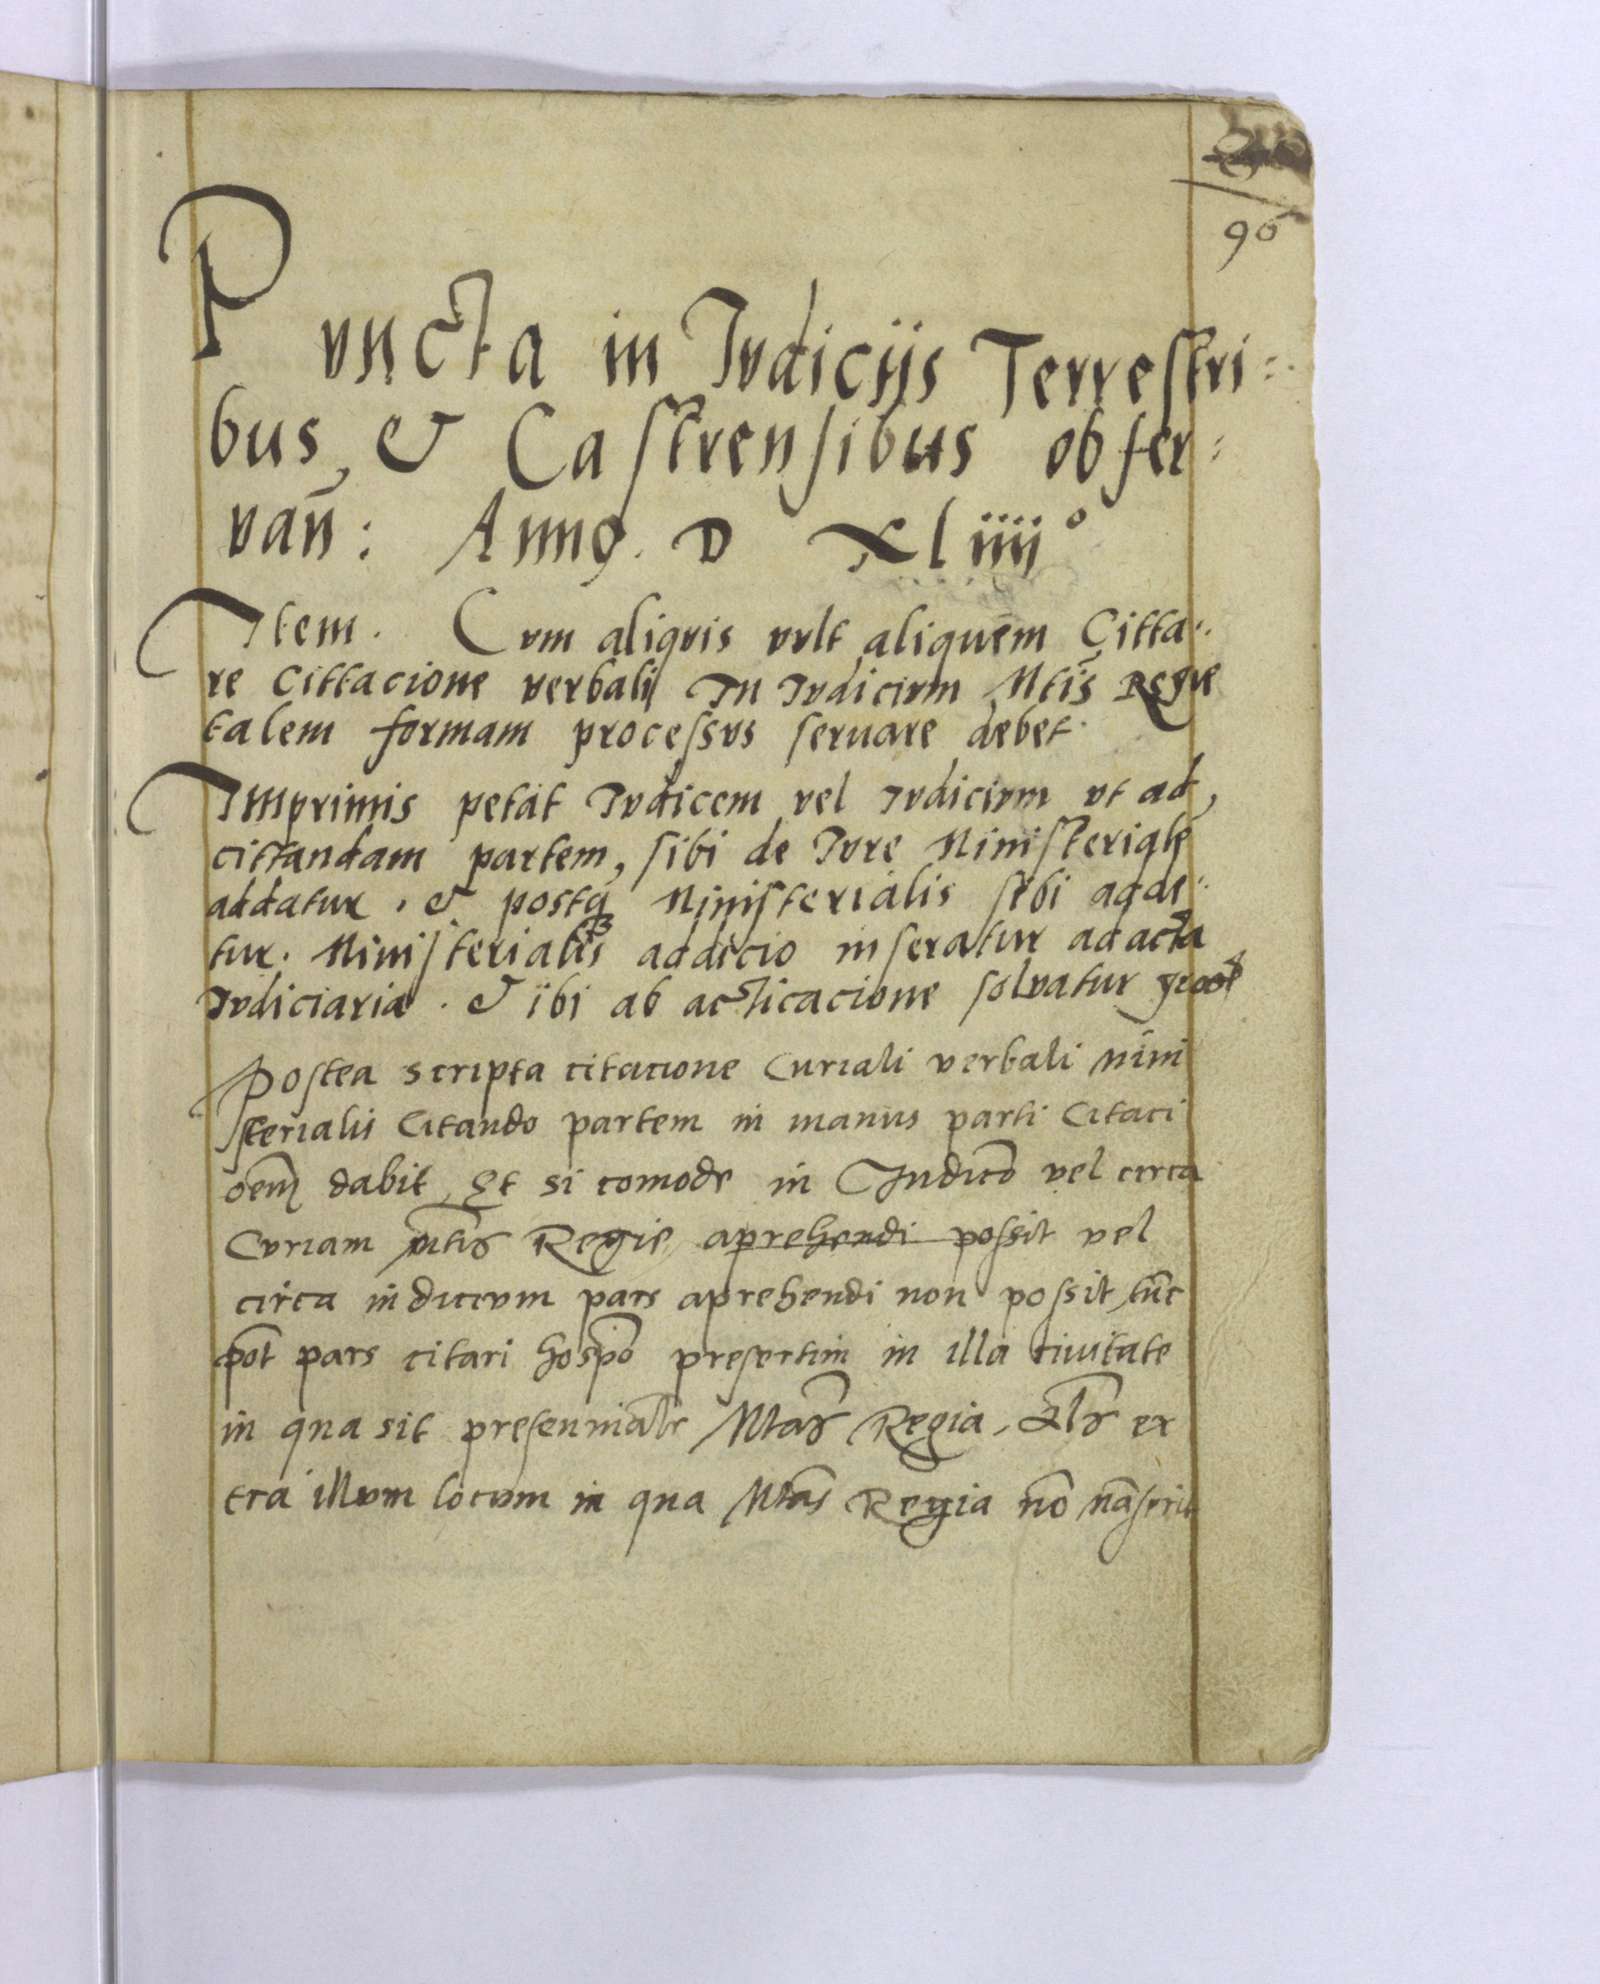 96
Puncta in Judicijs Terrestri=
bus, & Castrensibus obser=
van̄: Anno. D XLiiii°
Item. Cum aliquis vult aliquem Citta=
re Cittacione verbali In Judicium Mtis Regie
talem formam processus seruare debet.
Imprimis petat Judicem vel iudicium ut ad
cittandam partem, sibi de Jure Ministerialis
addatur. & postq̃ Ministerialis sibi adde=
tur. Ministerialis addicio inseratur ad acta
Judiciaria. & ibi ab acticacione soluatur
Postea scripta citacione Curiali verbali mini
sterialis Citando partem in manus parti Citaci
oem̃ dabit, Et si comode in Judico vel circa
Curiam mtis Regie aprehendi possit vel
circa indicium pars aprehendi non possit, tunc
pot pars citari hospo presertim in illa ciuitate
in qua sit Mtas Regia, Als ex
tra illum locum in qua Mtas Regia no